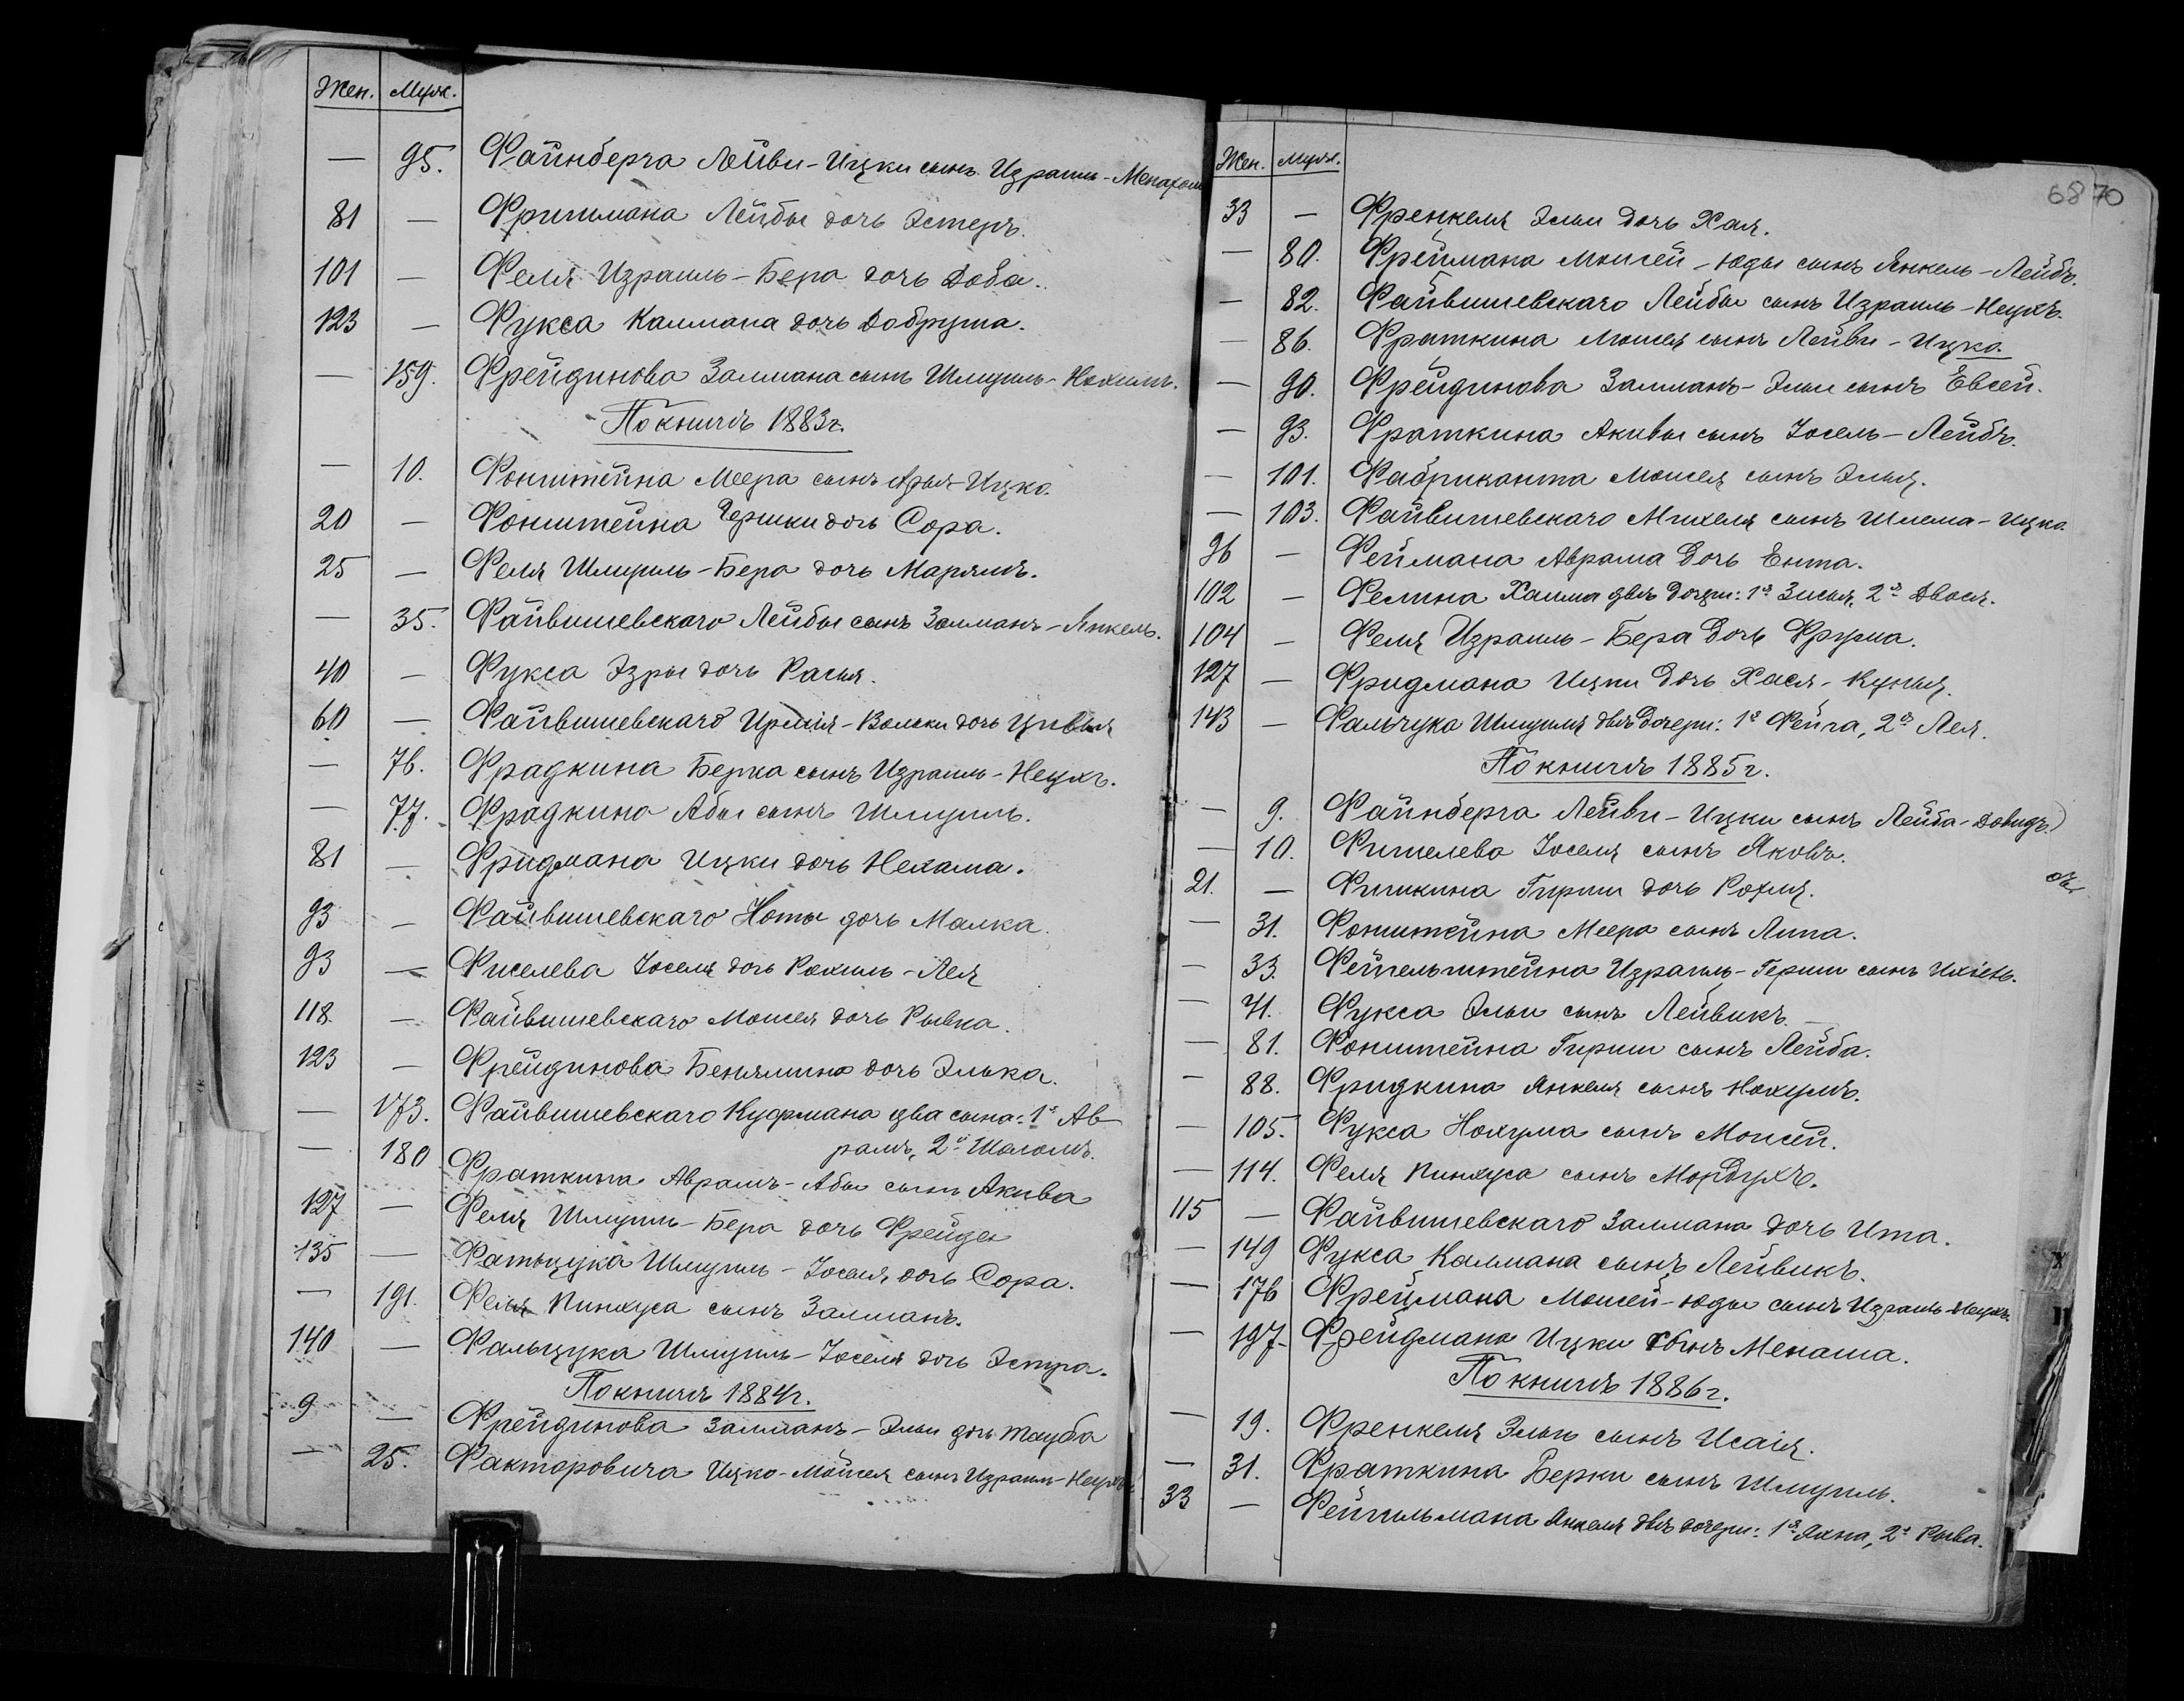 Жен. Муж.
— 95. Файнберга Лейви-Ицки сынъ Израиль-Менахем
81 — Фришмана Лейбы дочь Эстеръ.
101 — Феля Израиль-Бера дочь Доба.
123 — Фукса Калмана дочь Добруша.
— 159. Фрейдинова Залмана сынъ Шмуиль-Нохимъ.
По книгѣ 1883г.
— 10. Фонштейна Меера сынъ Арья-Ицко.
20 — Фонштейна Гершки дочь Сора.
25 — Феля Шмуиль-Бера дочь Марямъ.
— 35. Файвишевскаго Лейбы сынъ Залманъ-Янкель.
40 — Фукса Эзры дочь Расья.
60 — Файвишевскаго Ирмія-Вольки дочь Цивья
— 76. Фрадкина Берка сынъ Израиль-Неухъ.
— 77. Фрадкина Абы сынъ Шмуиль.
81 — Фридмана Ицки дочь Нехама.
93 — ФайвишевскагоНоты дочь Малка.
93 — Фиселева Іоселя дочь Рохиль-Лея
118. — Файвишевскаго Моисея дочь Рывка.
123 — Фрейдинова Беньямина дочь Элька.
— 173. Файвишевскаго Куфмана два сына: 1й Ав-
рамъ, 2й Шоломъ.
— 180 Фраткина Аврамъ-Абы сынъ Акива
127 — Феля Шмуиль-Бера дочь Фрейда
135 — Фальцука Шмуиль-Іоселя дочь Сора.
— 191. Феля Пинхуса сынъ Залманъ.
140 — Фальцука Шмуиль-Іоселя дочь Эстра.
По книгѣ 1884г.
9 — Фрейдинова Залманъ-Эльи дочь Тауба
— 25. Факторовича Ицко-Мойсея сынъ Израиль-Неухъ
68 70
Жен. Муж.
33 — Френкеля Эльи дочь Хая.
— 80. Фреймана Моисей-Юды сынъ Янкель-Лейбъ.
— 82. Файвишевскаго Лейбы сынъ Израиль-Неухъ.
— 86. Фраткина Моисея сынъ Лейви-Ицко.
— 90. Фрейдинова Залманъ-Эльи сынъ Евсей.
— 93. Фраткина Акивы сынъ Іосель-Лейбъ.
— 101. Фабриканта Моисея сынъ Элья.
— 103. Файвишевскаго Михеля сынъ Шлема-Ицко
96 — Феймана Аврама дочь Ента.
102 — Фелина Хаима двѣ дочери: 1я Зисья, 2я Двося.
104 — Феля Израиль-Бера дочь Фрума.
127 — Фридмана Ицки дочь Хася-Кунья.
143 — Фальчука Шмуиля двѣ дочери: 1я Фейга, 2я Лея.
По книгѣ 1885г.
— 9. Файнберга Лейви-Ицки сынъ Лейба-Довидъ.
— 10. Фишелева Іоселя сынъ Яковъ.
21. — Фишкина Гирши дочь Рохля.
— 31. Фонштейна Меера сынъ Липа.
— 33. Фейгельштейна Израиль-Герши сынъ Ихіель.
— 71. Фукса Эльи сынъ Лейвикъ.
— 81. Фонштейна Гирши сынъ Лейба.
— 88. Фридкина Янкеля сынъ Нохумъ.
— 105. Фукса Нохума сынъ Моисей.
— 114. Феля Пинхуса сынъ Мордухъ.
115 — Файвишевскаго Залмана дочь Ита.
— 149 Фукса Калмана сынъ Лейвикъ.
— 176 Фреймана Моисей-Юды сынъ Израиль-Неухъ.
— 197. Фрейдмана Ицки сынъ Менаша.
По книгѣ 1886г.
— 19. Френкеля Эльи сынъ Исаія.
— 31. Фраткина Берки сынъ Шмуиль.
33 — Фейгильмана Янкеля двѣ дочери: 1я Яхна, 2я Рыва.